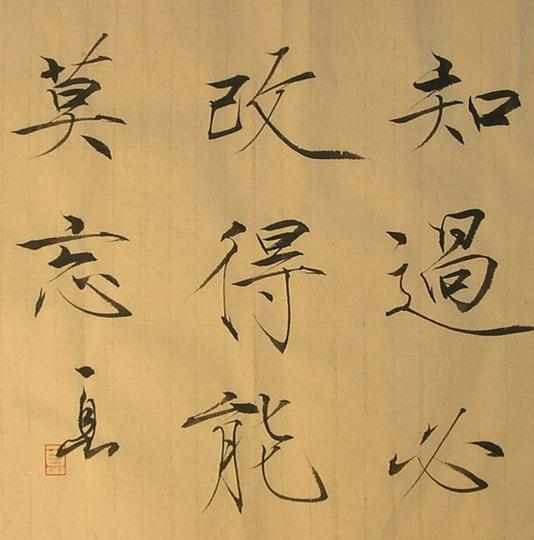 知過必
改得能
莫忘